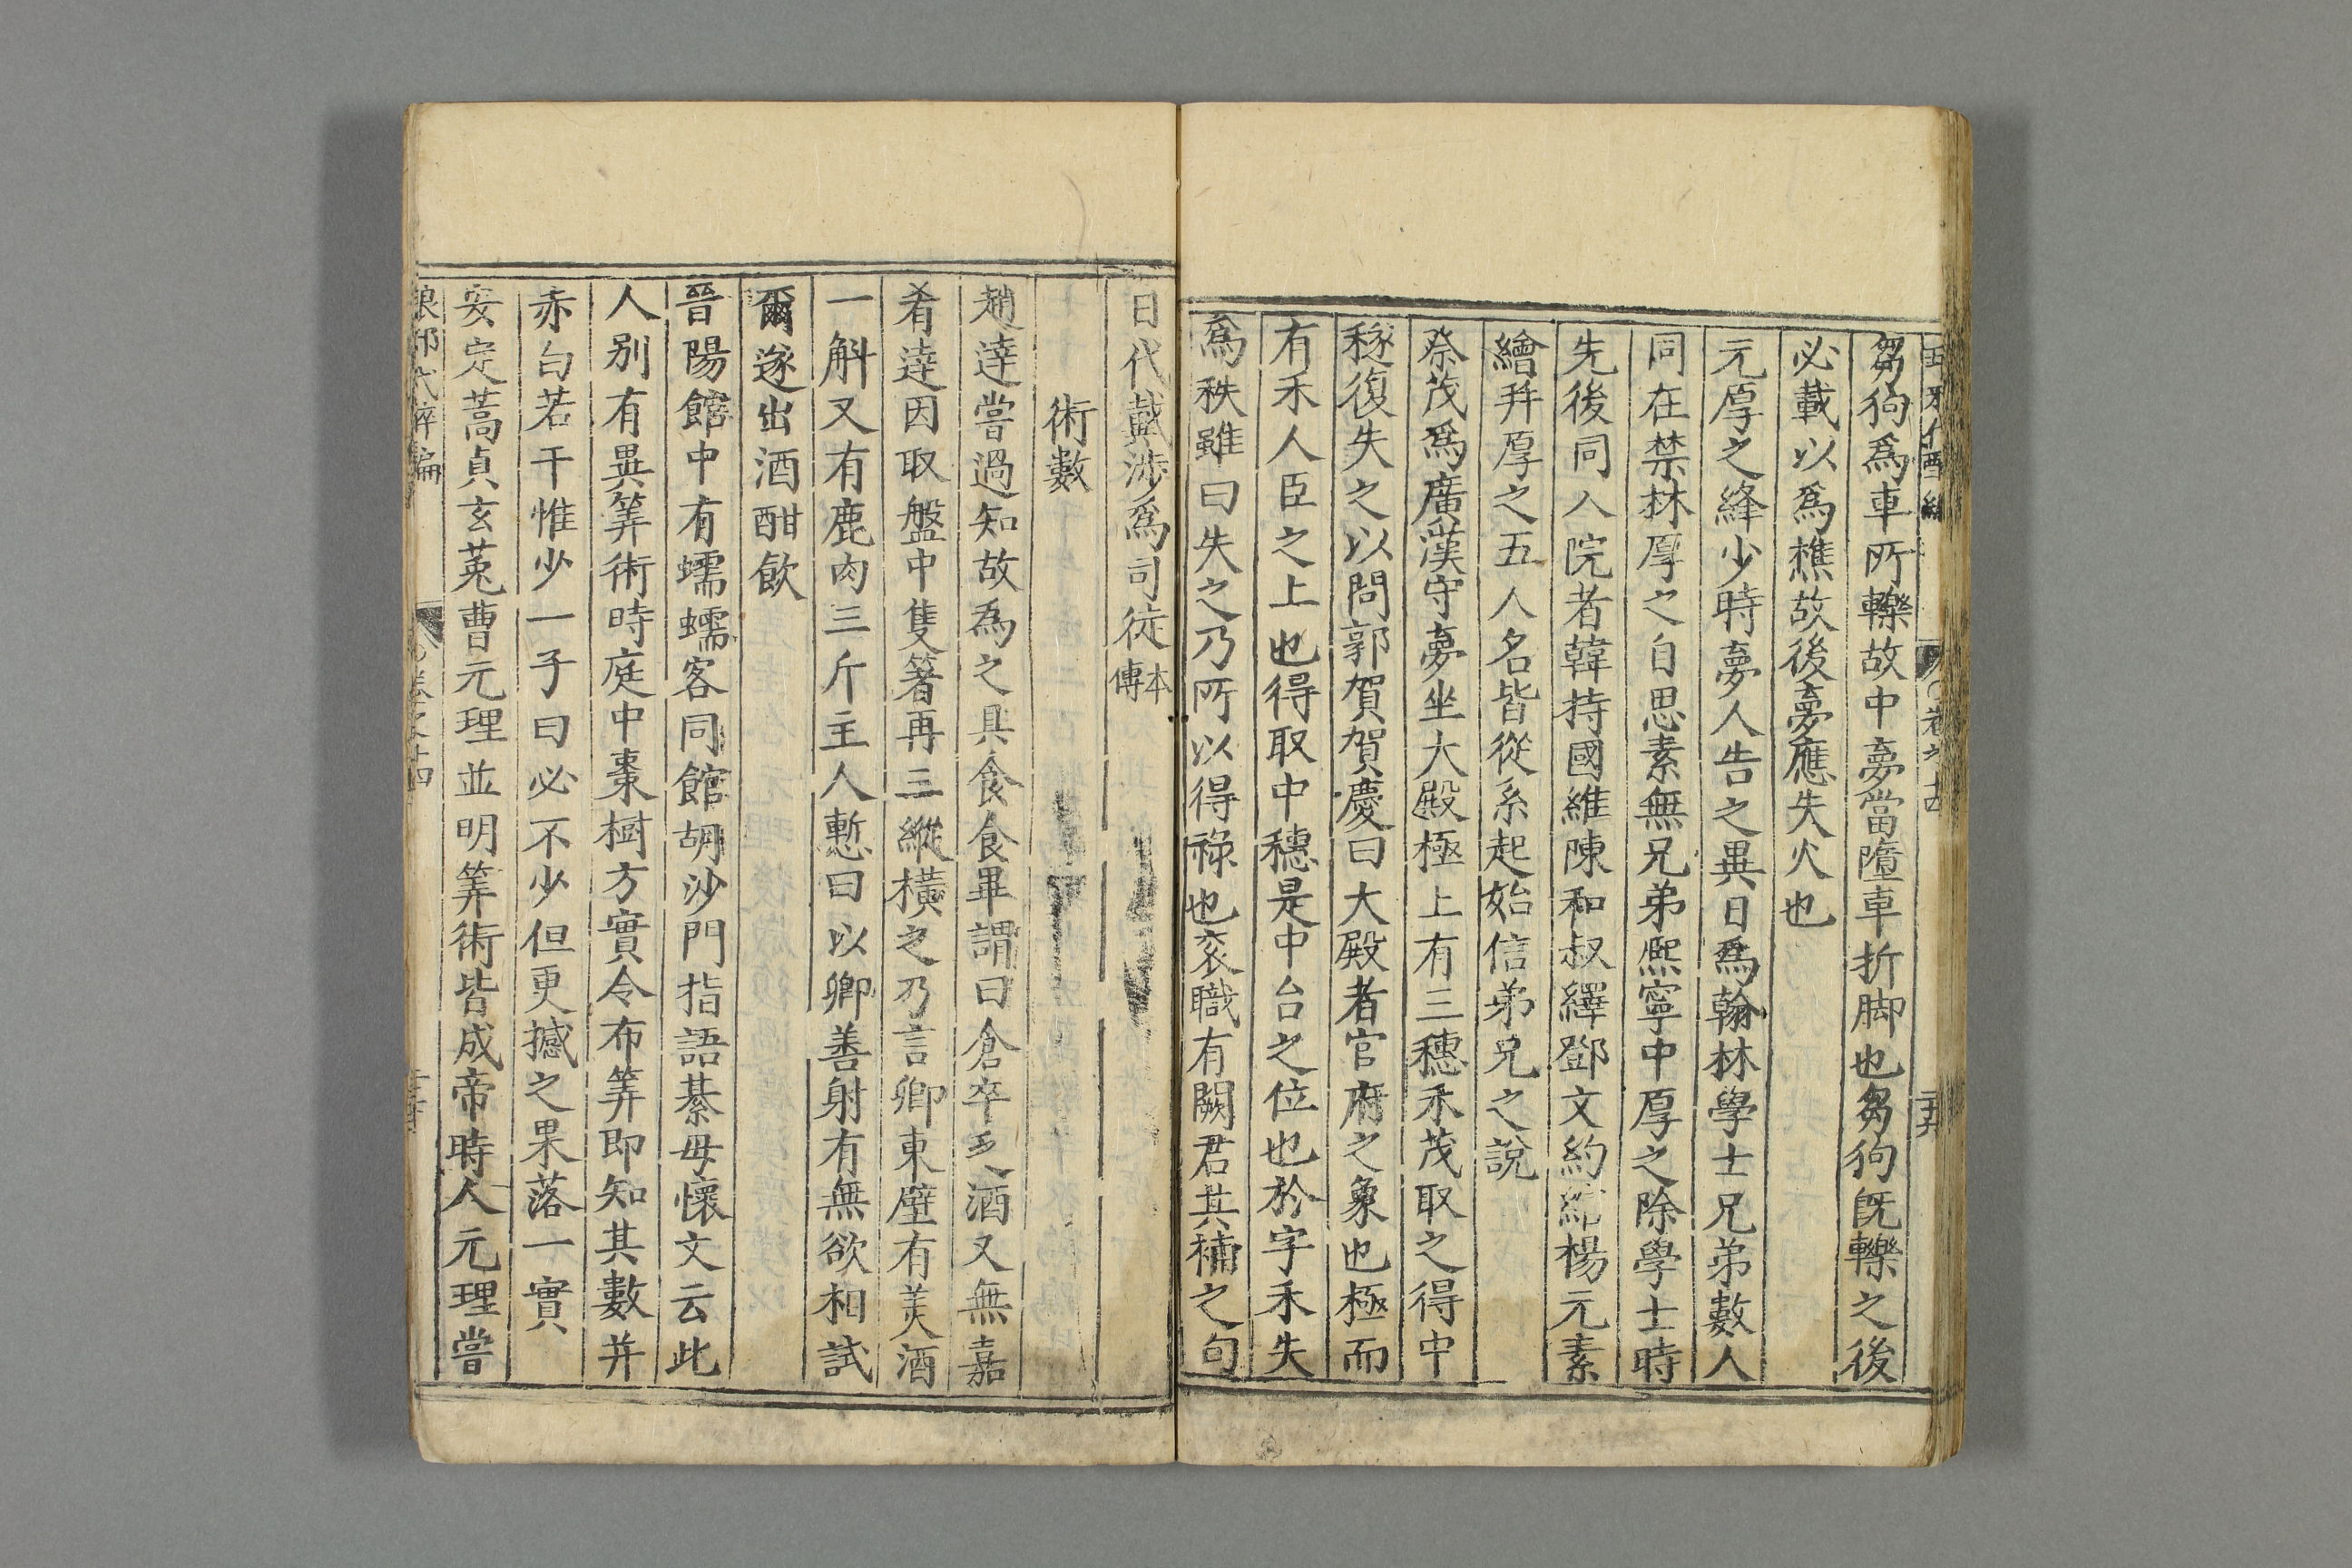 芻狗爲車所轢故中夢當墮車折脚也芻狗旣轢之後
必載以爲樵故後夢應失火也
元厚之絳少時夢人告之異日爲翰林學士兄弟數人
同在禁林厚之自思素無兄弟熈寧中厚之除學士時
先後同入院者韓持國維陳和叔繹鄧文約綰楊元素
繪幷厚之五人名皆從系起始信弟兄之說
蔡茂爲廣漢守夢坐大殿極上有三穗禾茂取之得中
穟復失之以問郭賀賀慶曰大殿者官府之象也極而
有禾人臣之上也得取中穗是中台之位也於字禾失
爲秩雖曰失之乃所以得祿也衮職有闕君其補之句
日代戴涉爲司徒本傳
術數
趙逹嘗過知故爲之具食食畢謂曰倉卒乏酒又無嘉
肴逹因取盤中隻箸再三縱橫之乃言卿東壁有美酒
一斛又有鹿肉三斤主人慙曰以卿善射有無欲相試
爾遂出酒酣飮
晉陽館中有蠕蠕客同館胡沙門指語綦毋懷文云此
人別有異筭術時庭中棗樹方實令布筭即知其數幷
赤白若干惟少一子曰必不少但更撼之果落一實
安定嵩貞玄菟曹元理並明筭術皆成帝時人元理嘗
琅邪代醉編　卷之十四